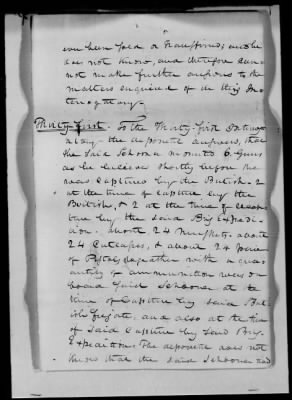 ever been sold or transferred, and he
does not know, and therefore can
not make further answers to the
matters enquired of in this In
terrogatory.
Thirty first. To the Thirty-first Interrog
atory the deponent answers, that
the said Schooner mounted 6 Guns
as he believes shortly before she
was captured by the British - 2
at the time of capture by the
British, & 2 at the time of
ture by the said Brig Expedi-
tion. about 24 Muskets, about
24 Cutlasses, & about 24 pairs
of Pistols, together with a quan
antity of ammunition were on
board said Schooner at the
time of Capture by said Brit
ish frigate, and also at the time
of said Capture by said Brig
Expedition. The deponent does not
know that the said Schooner had